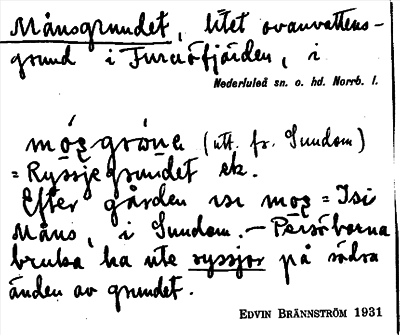 Månsgrundet, litet ovanvattens-
grund i Furuöfjärden, i
Nederluleå sn. o. hd. Norrb. l.
mo̱s̱gro̱ṉe̱ (utt. fr. Sundom)
= Ryssjegrundet ek.
Efter gården isi mo̱s̱ = Isi
Måns, i Sundom. — Persöborna
bruka ha ute ryssjor på södra
änden av grundet.
EDVIN BRÄNNSTRÖM 1931